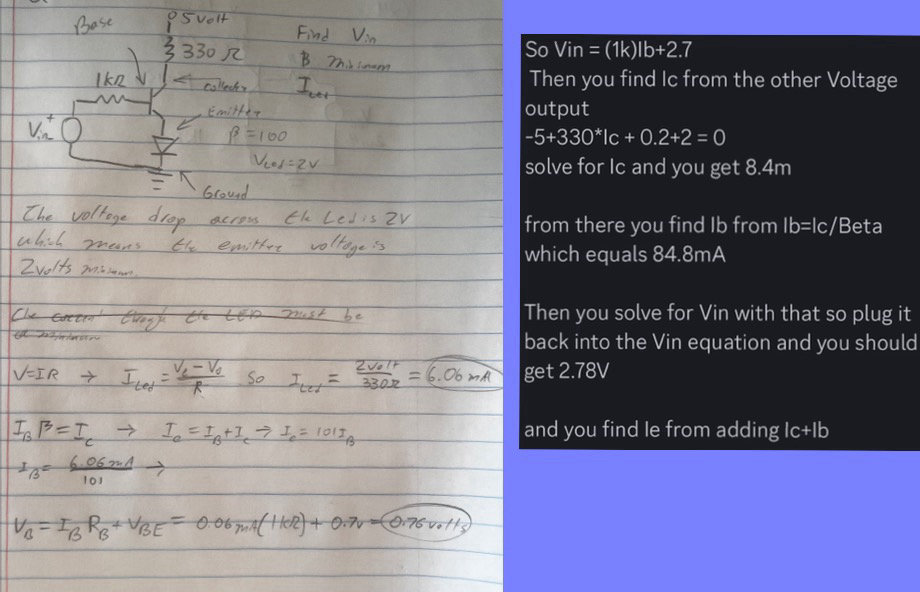 Base
5 volt
330 Ω
Find Vin
β minimum
I Led
1kΩ
collector
Emitter
Vin
+
β = 100
VLed = 2V
Ground
The voltage drop across the Led is 2V
which means the emitter voltage is
2 volts minimum.
V=IR → ILed = / R so ILed = 2 volt / 330Ω = 6.06 mA
IB β = IC → Ie = IB + IC → Ie = 101 IB
IB = 6.06 mA / 101 →
VB = IB RB + VBE = 0.06 mA (1kΩ) + 0.7v = 0.76 volts
So Vin = (1k)Ib+2.7
Then you find Ic from the other Voltage
output
-5+330*Ic + 0.2+2 = 0
solve for Ic and you get 8.4m
from there you find Ib from Ib=Ic/Beta
which equals 84.8mA
Then you solve for Vin with that so plug it
back into the Vin equation and you should
get 2.78V
and you find Ie from adding Ic+Ib